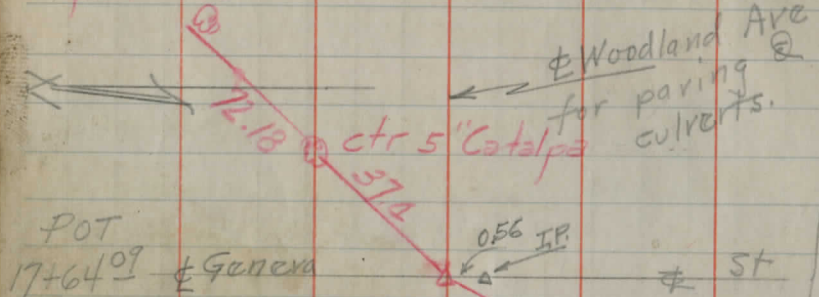 ℄ Woodland Ave
for paving @
culverts.
72.18
ctr 5" Catalpa
37.2
POT
0.56 I.P.
17+64.09 ℄ Geneva ℄ St